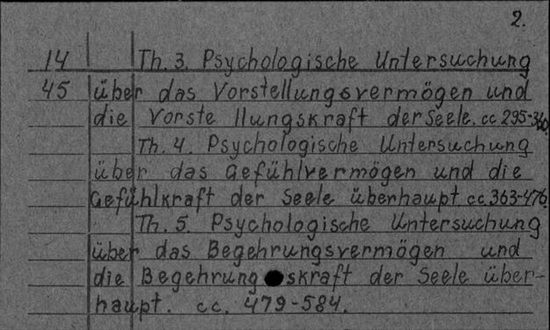 2.
14 Th. 3. Psychologische Untersuchung
45 über das Vorstellungsvermögen und
die Vorste llungskraft der Seele. cc 295-360
Th. 4. Psychologische Untersuchung
über das Gefühlvermögen und die
Gefühlkraft der Seele überhaupt cc. 363-476.
Th. 5. Psychologische Untersuchung
über das Begehrungsvermögen und
die Begehrung skraft der Seele über-
haupt. cc. 479-584.